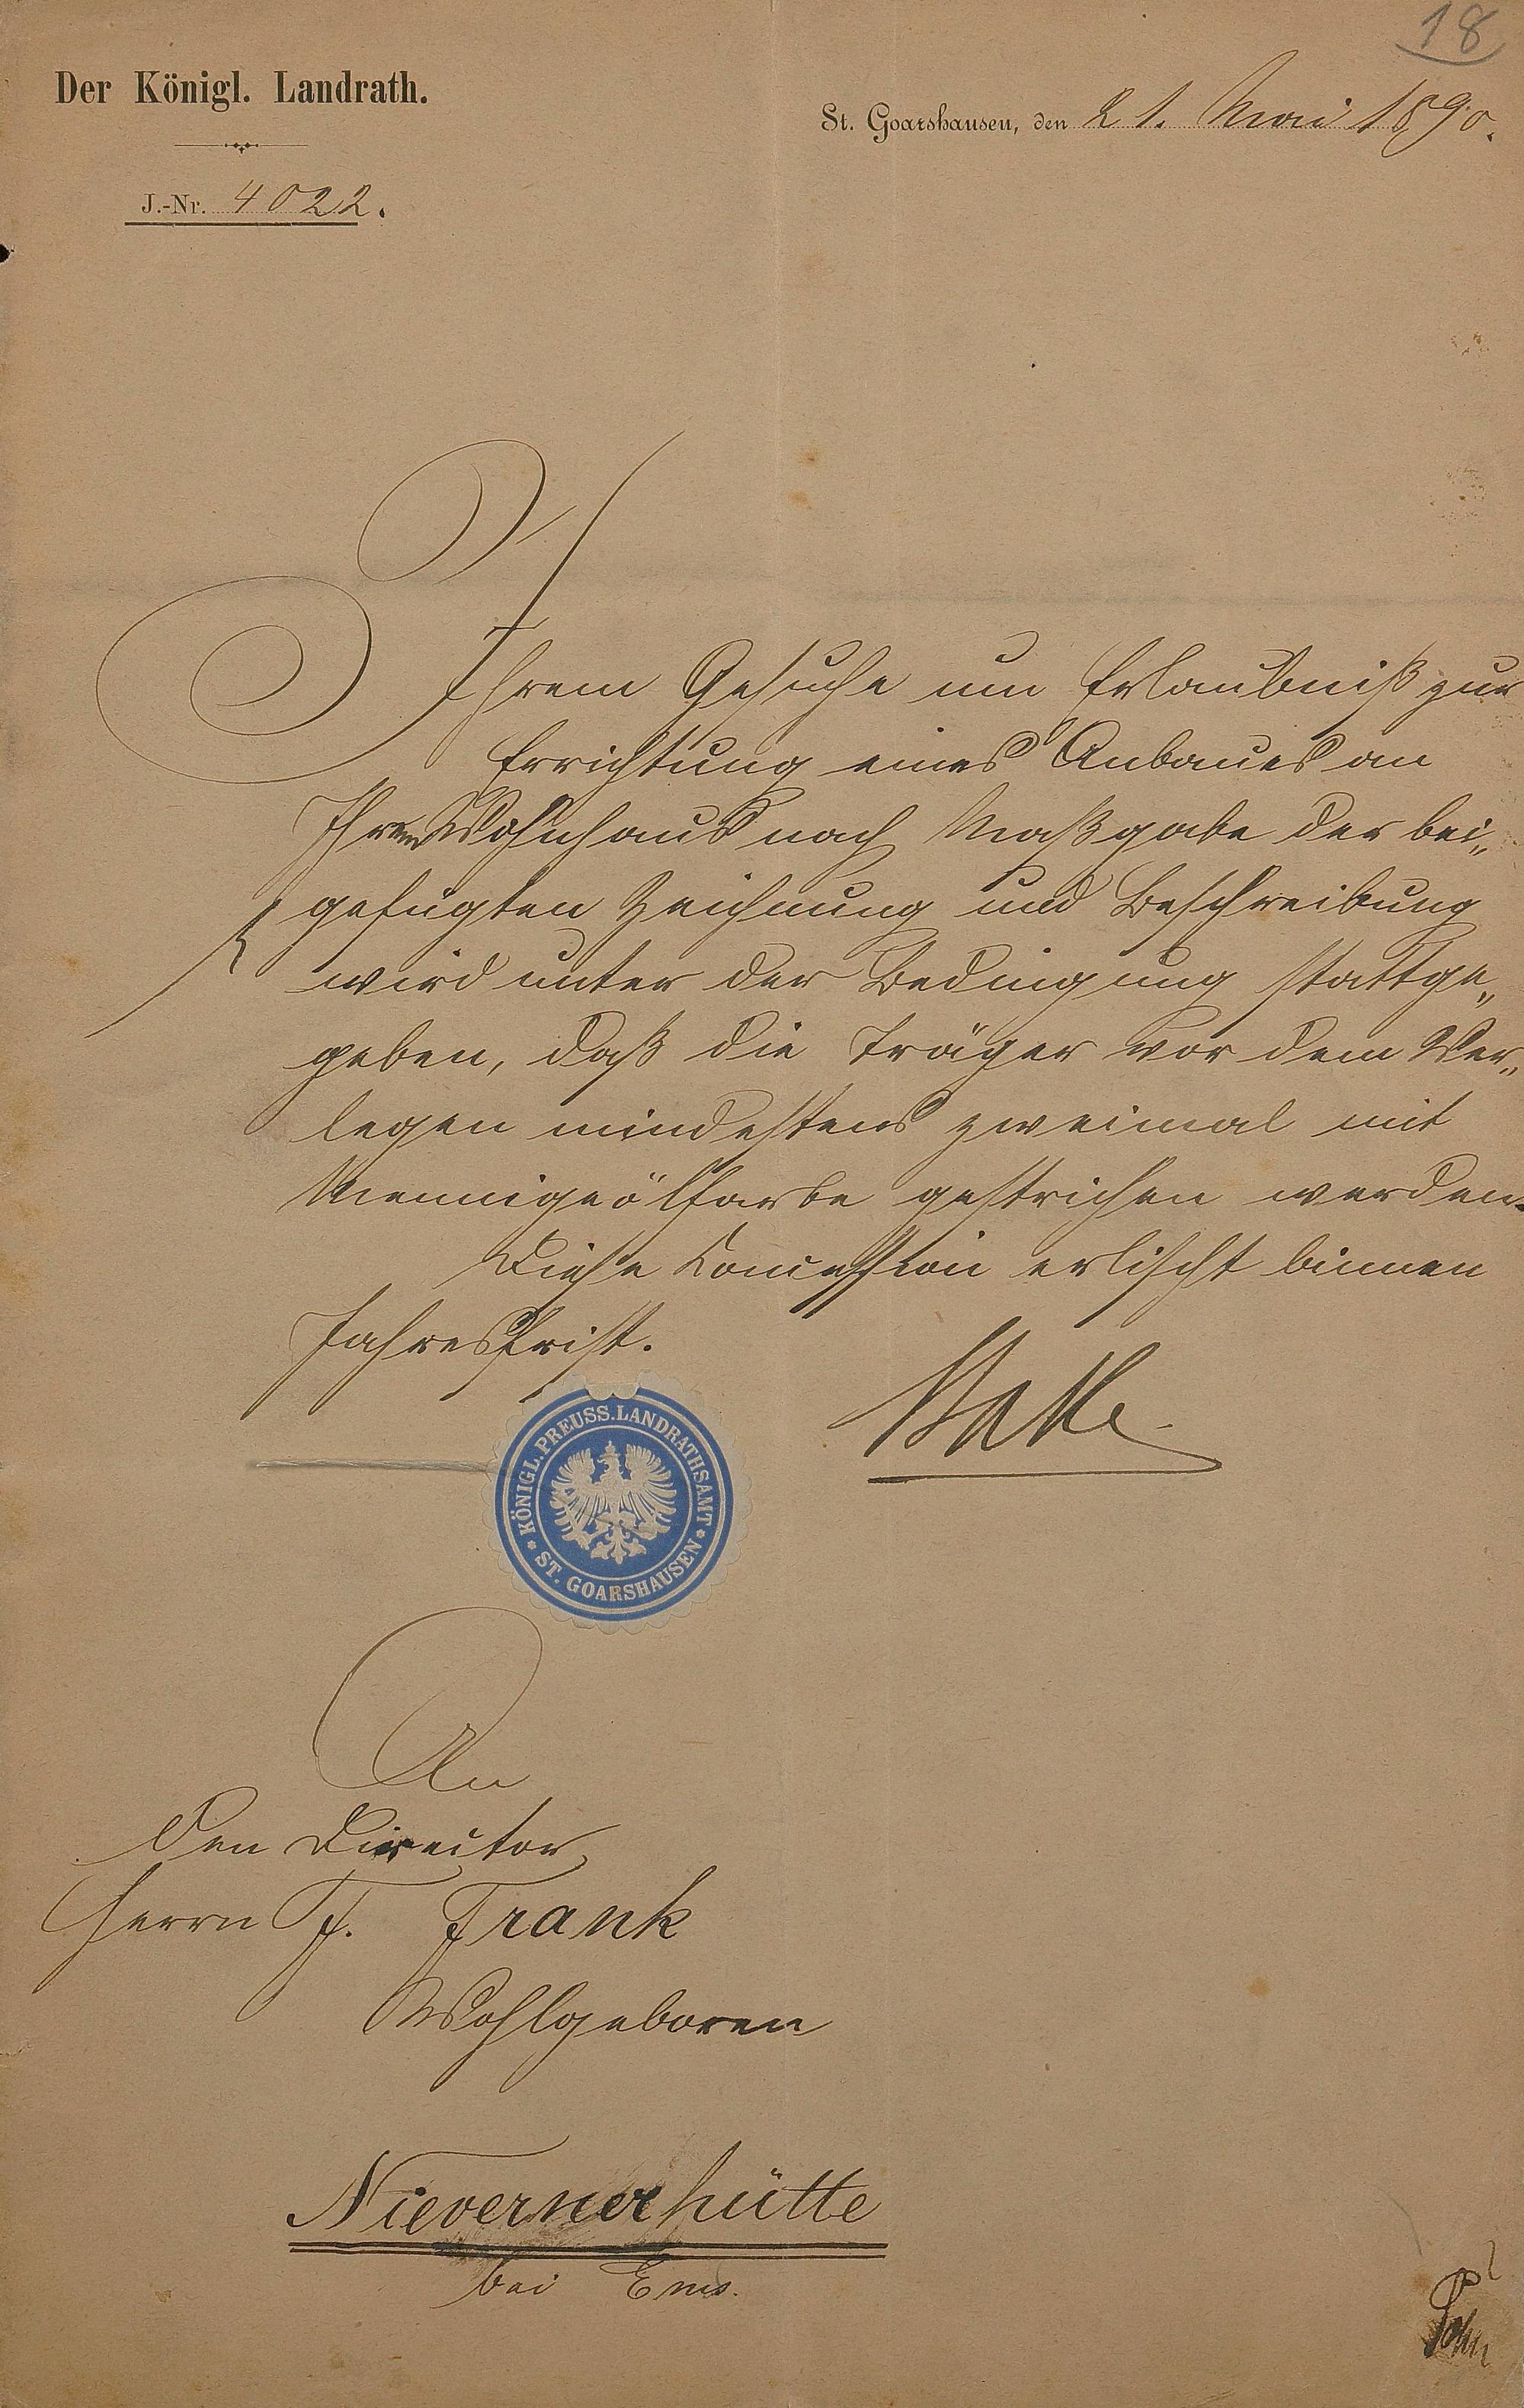 18
Der Königl. Landrath.
St. Goarshausen, den 21. Mai 1890.
J.-Nr. 4022.
Ihrem Gesuche um Erlaubniß zur
Errichtung eines Anbaues an
Ihrem Wohnhaus nach Maßgabe der bei„
gefügten Zeichnung und Beschreibung
wird unter der Bedingung stattge„
geben, daß die Träger vor dem Ver„
legen mindestens zweimal mit
Mennigeölfarbe gestrichen werden.
Diese Concession erlischt binnen
Jahresfrist.
KÖNIGL. PREUSS. LANDRATHSAMT
* ST. GOARSHAUSEN *
An
den Director
Herrn F. Frank
Wohlgeboren
Nievernerhütte
bei Ems.